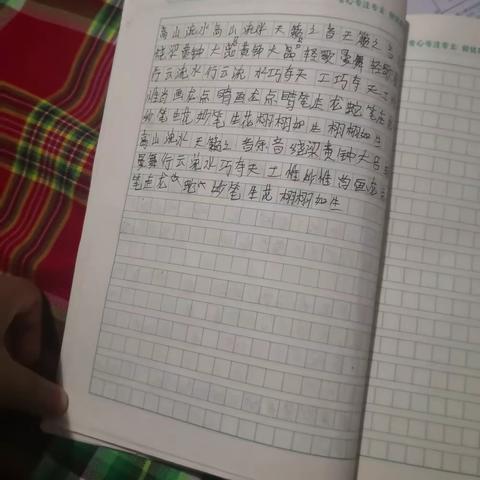 心专注专业
高山流水高山流水天籁之音天籁之音
绕梁黄钟大吕黄钟大吕轻歌曼舞轻歌
行云流水行云流水巧夺天工巧夺天工
惟肖画龙点睛画龙点睛笔走龙蛇笔走
妙笔生花妙笔生花栩栩如生栩栩如生
高山流水天籁之音余音绕梁黄钟大吕
曼舞行云流水巧夺天工惟妙惟肖画龙
笔走龙蛇妙笔生花栩栩如生